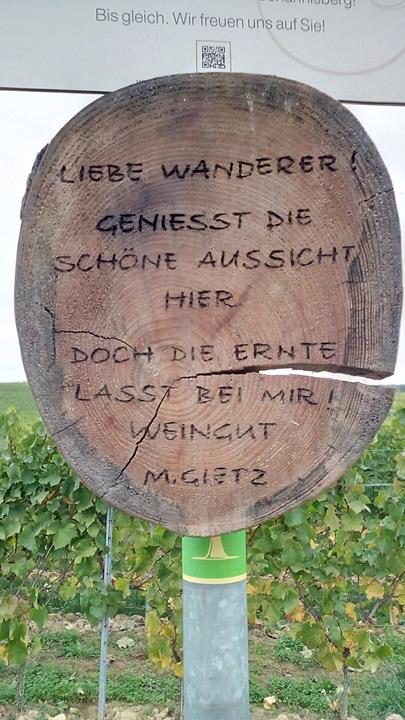 Bis gleich. Wir freuen uns auf Sie!
LIEBE WANDERER!
GENIESST DIE
SCHÖNE AUSSICHT
HIER
DOCH DIE ERNTE
LASST BEI MIR!
WEINGUT
M. GIETZ